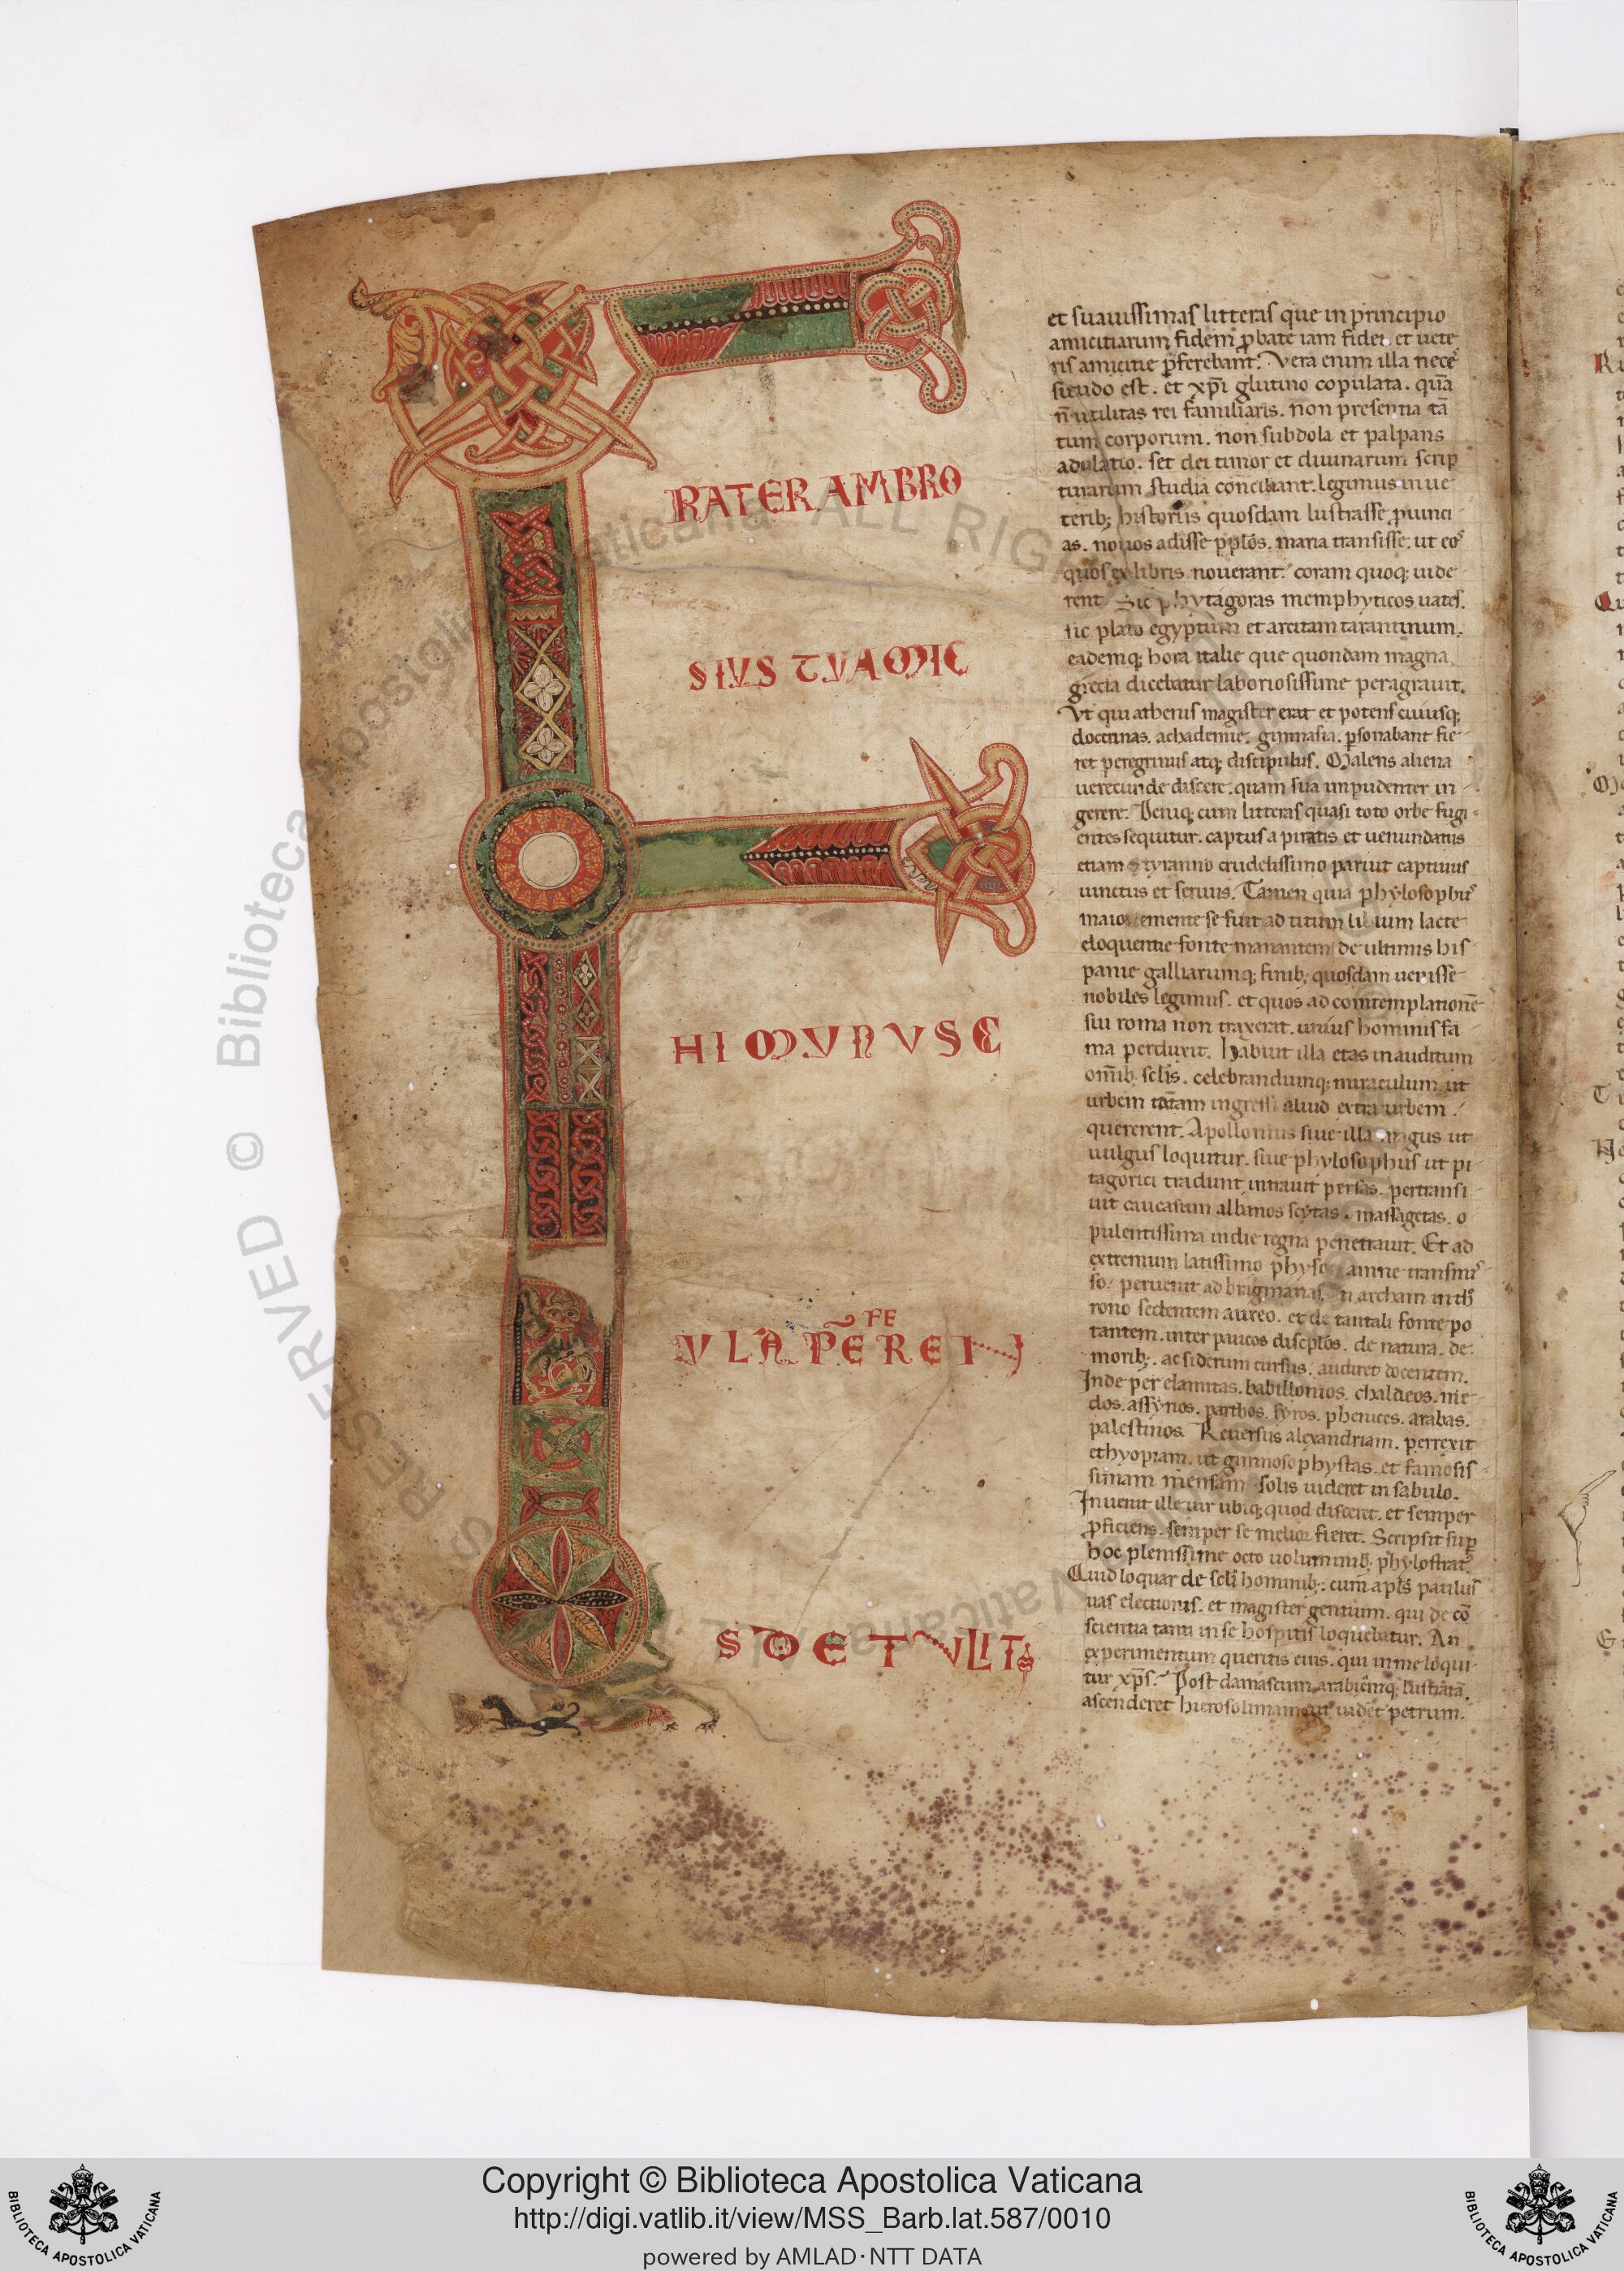 F
RATER AMBRO
SIUS TUA MIC
HI MUNUSC
ULA P̄FERENS
S DETULIT
et suauissimas litteras que in principio
amicitiarum fidem ꝓbate iam fidei et uete
ris amicitie p̄ferebant. Vera enim illa nece
situdo est. et xp̄i glutino copulata. quā
n̄ utilitas rei familiaris. non presentia tā
tum corporum. non subdola et palpans
adulatio. set dei timor et diuinarum scrip
turarum studia conciliant. legimus in ue
terib; historiis quosdam lustrasse ꝓuinci
as. nouos adisse pp̄los. maria transisse. ut eoˢ
quos ex libris nouerant. coram quoq; uide
rent. Sic phytagoras memphyticos uates.
sic plato egyptum et arcitam tarantinum.
eademq; hora italie que quondam magna
grecia dicebatur laboriosissime peragrauit.
Vt qui athenis magister erat et potens cuiusq;
doctrinas. achademie. gimnasia. ꝑsonabant fie
ret peregrinus atq; discipulus. Malens aliena
uerecunde discere. quam sua inpudenter in
gerere. Deniq; cum litteras quasi toto orbe fugi
entes sequitur. captus a piratis et uenundatus
etiam tyranno crudelissimo paruit captiuus
uinctus et seruus. Tamen quia phylosophuˢ
maior emente se fuit ad titum liuium lacte
eloquentie fonte manantem de ultimis his
panie galliarumq; finib; quosdam uenisse
nobiles legimus. et quos ad comtemplationē
sui roma non traxerat. unius hominis fa
ma perduxit. Habuit illa etas inauditum
om̄ib; sclīs. celebrandumq; miraculum ut
urbem tātam ingressi aliud extra urbem
quererent. Apollonius siue illa magus ut
uulgus loquitur. siue phylosophus ut pi
tagorici tradunt intrauit persas. pertransi
uit caucasum albanos scytas. massagetas. o
pulentissima indie regna penetrauit. Et ad
extremum latissimo physon amne transmiˢ
so. peruenit ad bragmanas. in archam in th̄
rono sedentem aureo. et de tantali fonte po
tantem. inter paucos discplōs. de natura. de
morib;. ac siderum cursus. audiret docentem.
Inde per elamitas. babillonios. chaldeos. me
dos. assyrios. parthos. syros. phenices. arabas.
palestinos. Reuersus alexandriam. perrexit
ethyopiam. ut gimnosophystas. et famosis
simam mensam solis uideret in sabulo.
Inuenit ille uir ubiq; quod disceret. et semper
ꝓficiens. semper se melior fieret. Scripsit suꝑ
hoc plenissime octo uoluminib; phylostratˢ.
Quid loquar de sclī hominib;: cum apl̄s paulus
uas electionis. et magister gentium. qui de cō
scientia tanti in se hospitis loquebatur. An
experimentum queritis eius. qui in me loqui
tur xp̄s. Post damascum arabiāmq; lustratā.
ascenderet hierosolimam ut uidēt petrum.
Copyright © Biblioteca Apostolica Vaticana
http://digi.vatlib.it/view/MSS_Barb.lat.587/0010
powered by AMLAD·NTT DATA
BIBLIOTECA APOSTOLICA VATICANA
BIBLIOTECA APOSTOLICA VATICANA